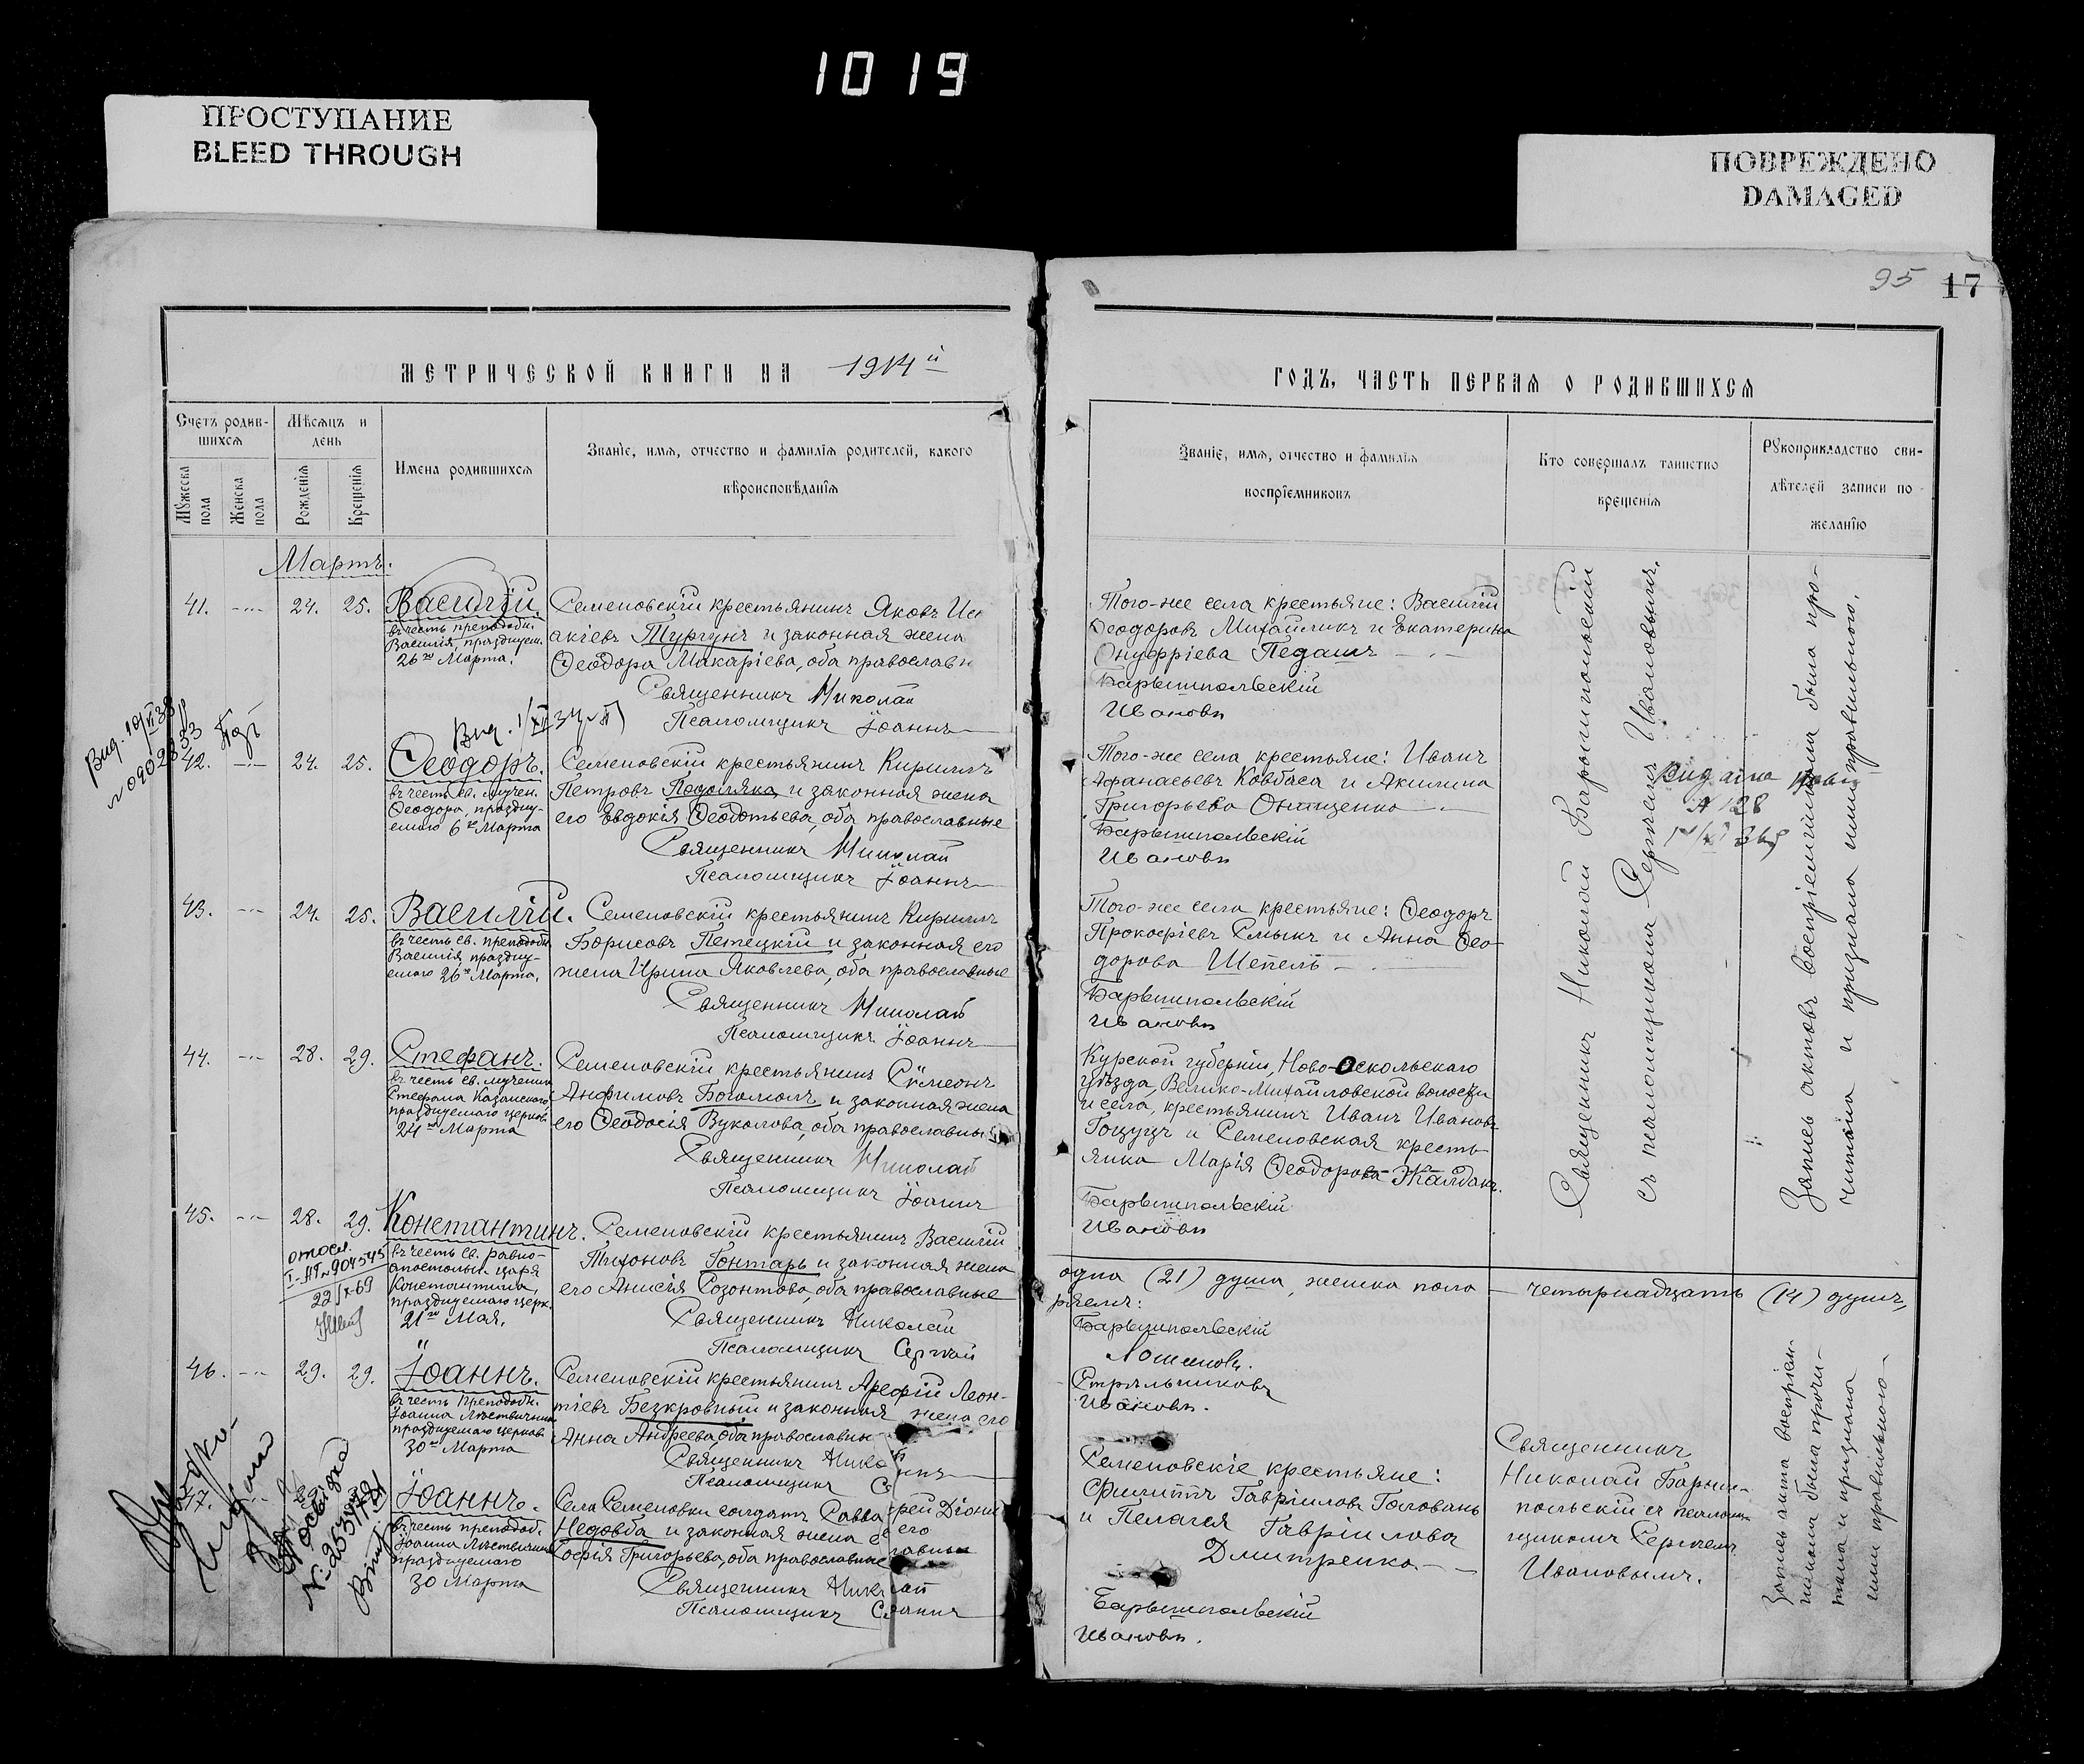 1019
ПРОСТУПАНИЕ
BLEED THROUGH
ПОВРЕЖДЕНО
DAMAGED
95 17
МЕТРИЧЕСКОЙ КНИГИ НА 1914й
Счетъ родив-
шихся
Мѣсяцъ и
день
Мужеска
пола
Женска
пола
Рожденія
Крещенія
Имена родившихся
Званіе, имя, отчество и фамилія родителей, какого
вѣроисповѣданія
Мартъ.
41. 24. 25. Василій.
въ честь преподобн.
Василія, праздцуем.
26го Марта.
Семеновскій крестьянинъ Яковъ Иса
акіевъ Тургунъ и законная жена
Ѳеодора Макаріева, оба православн
Священникъ Николай
Псаломщикъ Іоаннъ
42. 24. 25. Ѳеодоръ.
въ честь св. мучен.
Ѳеодора, праздну-
емаго 6го Марта
Семеновскій крестьянинъ Кириллъ
Петровъ Подоляка и законная жена
его Евдокія Ѳеодотьева, оба православные
Священникъ Николай
Псаломщикъ Іоаннъ
43. 24. 25. Василій.
въ честь св. преподобн.
Василія, праздну-
емаго 26го Марта.
Семеновскій крестьянинъ Кириллъ
Борисовъ Петецкій и законная его
жена Ирина Яковлева, оба православные
Священникъ Николай
Псаломщикъ Іоаннъ
44. 28. 29. Стефанъ.
въ честь св. мученика
Стефана Казанскаго
празднуемаго церков.
24го Марта
Семеновскій крестьянинъ Сѵмеонъ
Анфимовъ Богомолъ и законная жена
его Ѳеодосія Вуколова, оба православные
Священникъ Николай
Псаломщикъ Іоаннъ
45. 28. 29. Константинъ.
въ честь св. равно-
апостольн. царя
Константина,
празднуемаго церк.
21го Мая.
Семеновскій крестьянинъ Василій
Тихоновъ Гонтарь и законная жена
его Анисія Созонтова, оба православные
Священникъ Николай
Псаломщикъ Сергій
22/X-69
46. 29. 29. Іоаннъ.
въ честь Преподобн.
Іоанна Лѣствичника
празднуемаго церков.
30го Марта
Семеновскій крестьянинъ Арефій Леон-
тіевъ Безкровный и законная жена его
Анна Андреева, оба православн
Священникъ Нико
Псаломщикъ С
47. Іоаннъ.
въ честь преподоб.
Іоанна Лѣствичника
празднуемаго
30 Марта
Села Семеновки солдатъ Савва
Недовба и законная жена его
Софія Григорьева, оба православные
Священникъ Ник
Псаломщикъ С
ГОДЪ, ЧАСТЬ ПЕРВАЯ О РОДИВШИХСЯ
Званіе, имя, отчество и фамилія
воспріемниковъ
Кто совершалъ таинство
крещенія
Рукоприкладство сви-
дѣтелей записи по
желанію
Того-же села крестьяне: Василій
Ѳеодоровъ Михайликъ и Екатерина
Онуфріева Педашъ
Барышпольскій
Ивановъ
Того-же села крестьяне: Иванъ
Афанасьевъ Ковбаса и Акилина
Григорьева Онищенко
Барышпольскій
Ивановъ
Того-же села крестьяне: Ѳеодоръ
Прокофіевъ Смыкъ и Анна Ѳео-
дорова Шепель
Барышпольскій
Ивановъ
Курской губерніи, Ново-Оскольскаго
уѣзда, Велико-Михайловской волости
и села, крестьянинъ Иванъ Ивановъ
Гощуцъ и Семеновская кресть-
янка Марія Ѳеодорова Жалдакъ.
Барышпольскій
Ивановъ
Священникъ Николай Барышпольскій
съ псаломщикомъ Сергіемъ Ивановымъ.
Запись актовъ воспріемниками была про-
читана и признана ими правильною.
одна (21) душа, женска пола — четырнадцать (14) душъ,
Барышпольскій
Стрѣльниковъ
Ивановъ.
Семеновскіе крестьяне:
Филиппъ Гавріиловъ Головань
и Пелагея Гавріилова
Дмитренко.
Барышпольскій
Ивановъ.
Священникъ
Николай Барыш-
польскій съ псалом-
щикомъ Сергіемъ
Ивановымъ.
Запись акта воспріем-
никами была прочи-
тана и признана
ими правильною.